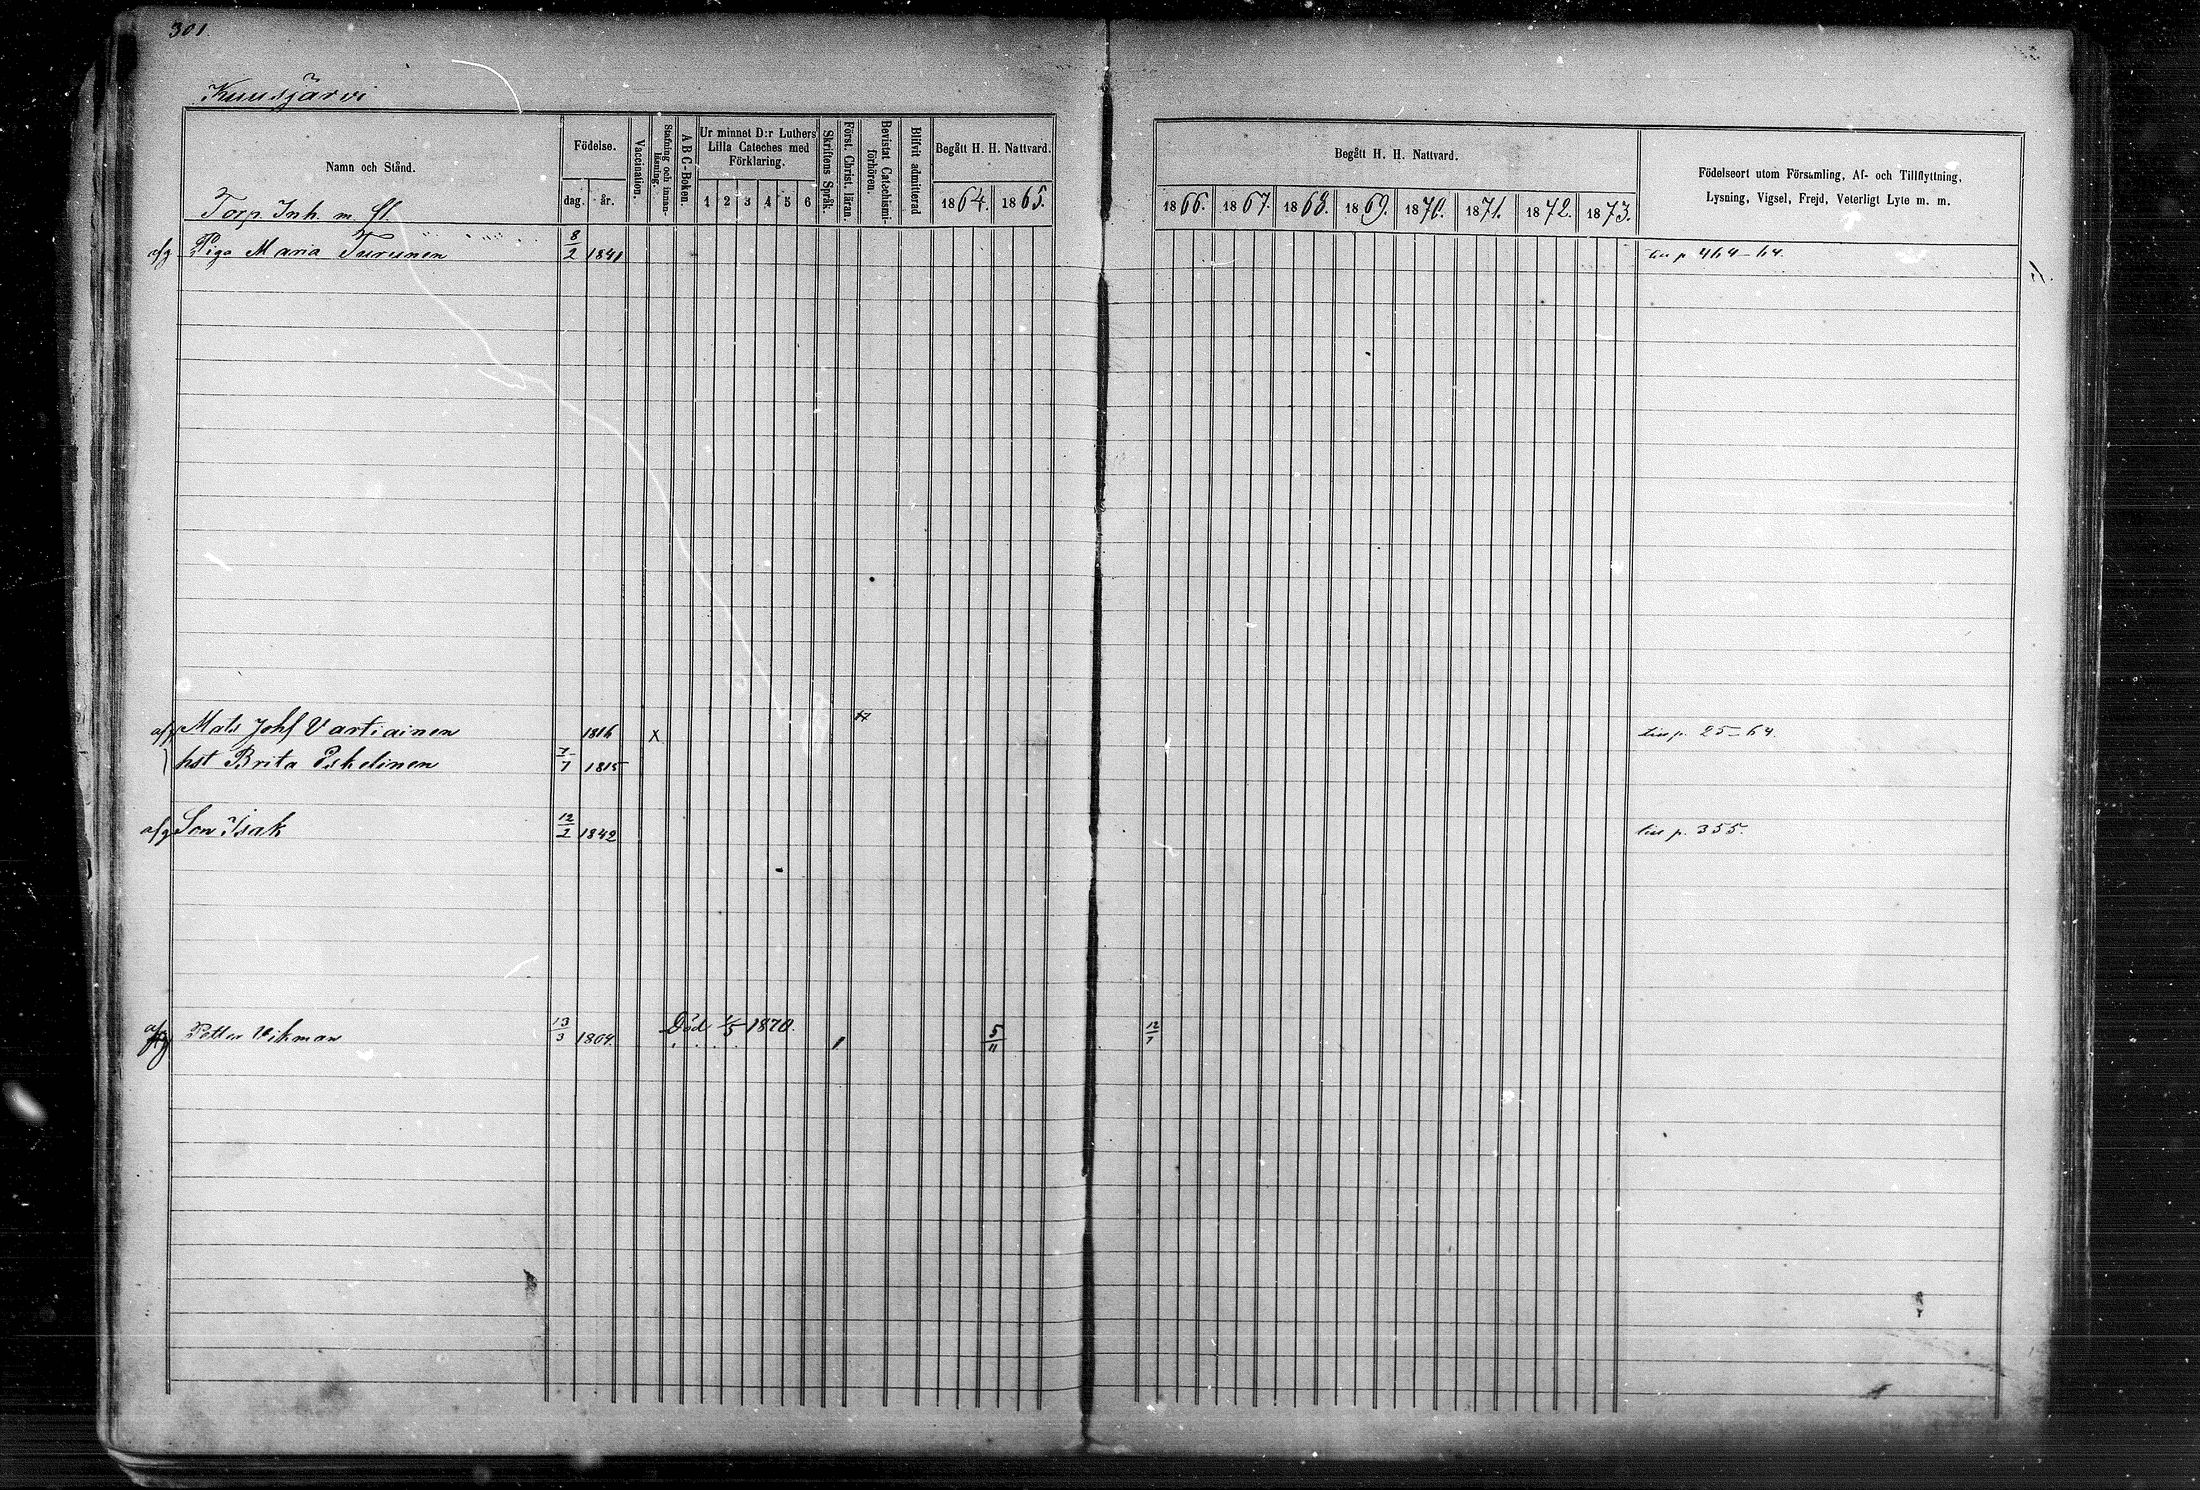 301
Kuusjärvi
Namn och Stånd.
Födelse.
dag. år.
Vaccination.
Stafning och innan-läsning.
A B C-Boken.
Ur minnet D:r Luthers Lilla Cateches med Förklaring.
1 2 3 4 5 6
Skriftens Språk.
Först. Christ. läran.
Bevistat Catechismi-förhören.
Blifvit admitterad
Begått H. H. Nattvard.
1864. 1865.
Begått H. H. Nattvard.
1866. 1867. 1868. 1869. 1870. 1871. 1872. 1873.
Födelseort utom Församling, Af- och Tillflyttning,
Lysning, Vigsel, Frejd, Veterligt Lyte m. m.
Torp. Inh. m. fl.
afg Piga Maria Turunen 8/2 1841 p 464-64.
afg Mats Johf Vartiainen 1816 x p. 25-64.
hst Brita Eskelinen 7/7 1815
afg Son Isak 12/2 1842 p. 355.
afg Petter Vikman 13/3 1804. Död 1/5 1870. 5/11 12/7